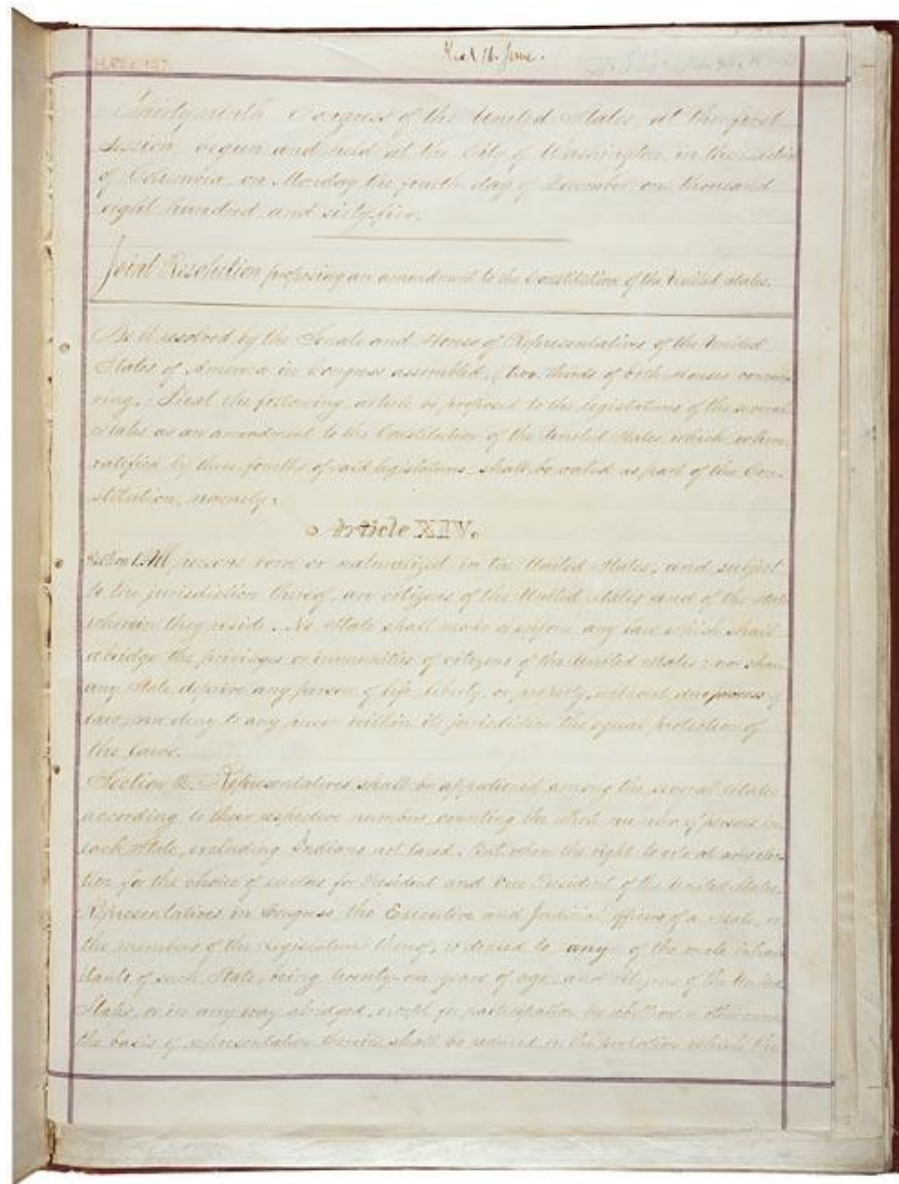 Rec'd 16 June.
Thirty-ninth Congress of the United States, at the first
session, begun and held at the City of Washington, in the District
of Columbia, on Monday the fourth day of December one thousand
eight hundred and sixty-five.
Joint Resolution proposing an amendment to the Constitution of the United States.
Be it resolved by the Senate and House of Representatives of the United
States of America in Congress assembled, (two thirds of both Houses concur-
ring,) That the following article be proposed to the legislatures of the several
States as an amendment to the Constitution of the United States, which when
ratified by three-fourths of said legislatures, shall be valid as part of the Con-
stitution, namely:
Article XIV.
Section 1. All persons born or naturalized in the United States, and subject
to the jurisdiction thereof, are citizens of the United States and of the State
wherein they reside. No State shall make or enforce any law which shall
abridge the privileges or immunities of citizens of the United States; nor shall
any State deprive any person of life, liberty, or property, without due process of
law, nor deny to any person within its jurisdiction the equal protection of
the laws.
Section 2. Representatives shall be apportioned among the several States
according to their respective numbers, counting the whole number of persons in
each State, excluding Indians not taxed. But when the right to vote at any elec-
tion for the choice of electors for President and Vice President of the United States,
Representatives in Congress, the Executive and Judicial officers of a State, or
the members of the Legislature thereof, is denied to any of the male inhabi-
tants of such State, being twenty-one years of age, and citizens of the United
States, or in any way abridged, except for participation in rebellion or other crime,
the basis of representation therein shall be reduced in the proportion which the